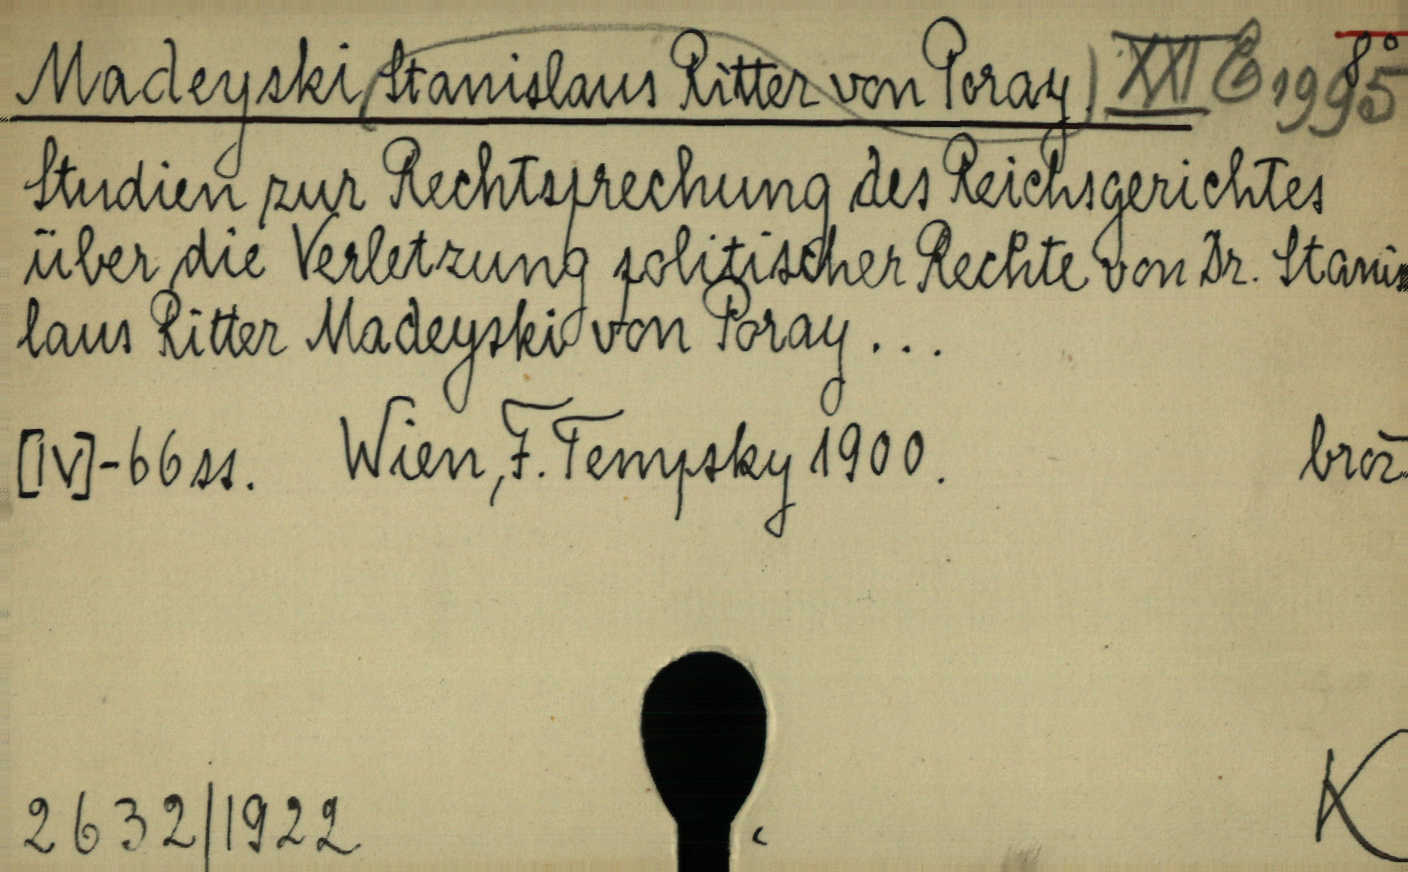 Madeyski Stanislaus Ritter von Poray. XXI G 1995 8°
Studien zur Rechtsprechung des Reichsgerichtes
über die Verletzung politischer Rechte von Dr. Stanis
laus Ritter Madeyski von Poray ...
[IV]-66 ss. Wien, F. Tempsky 1900. broż.
2632/1922 K